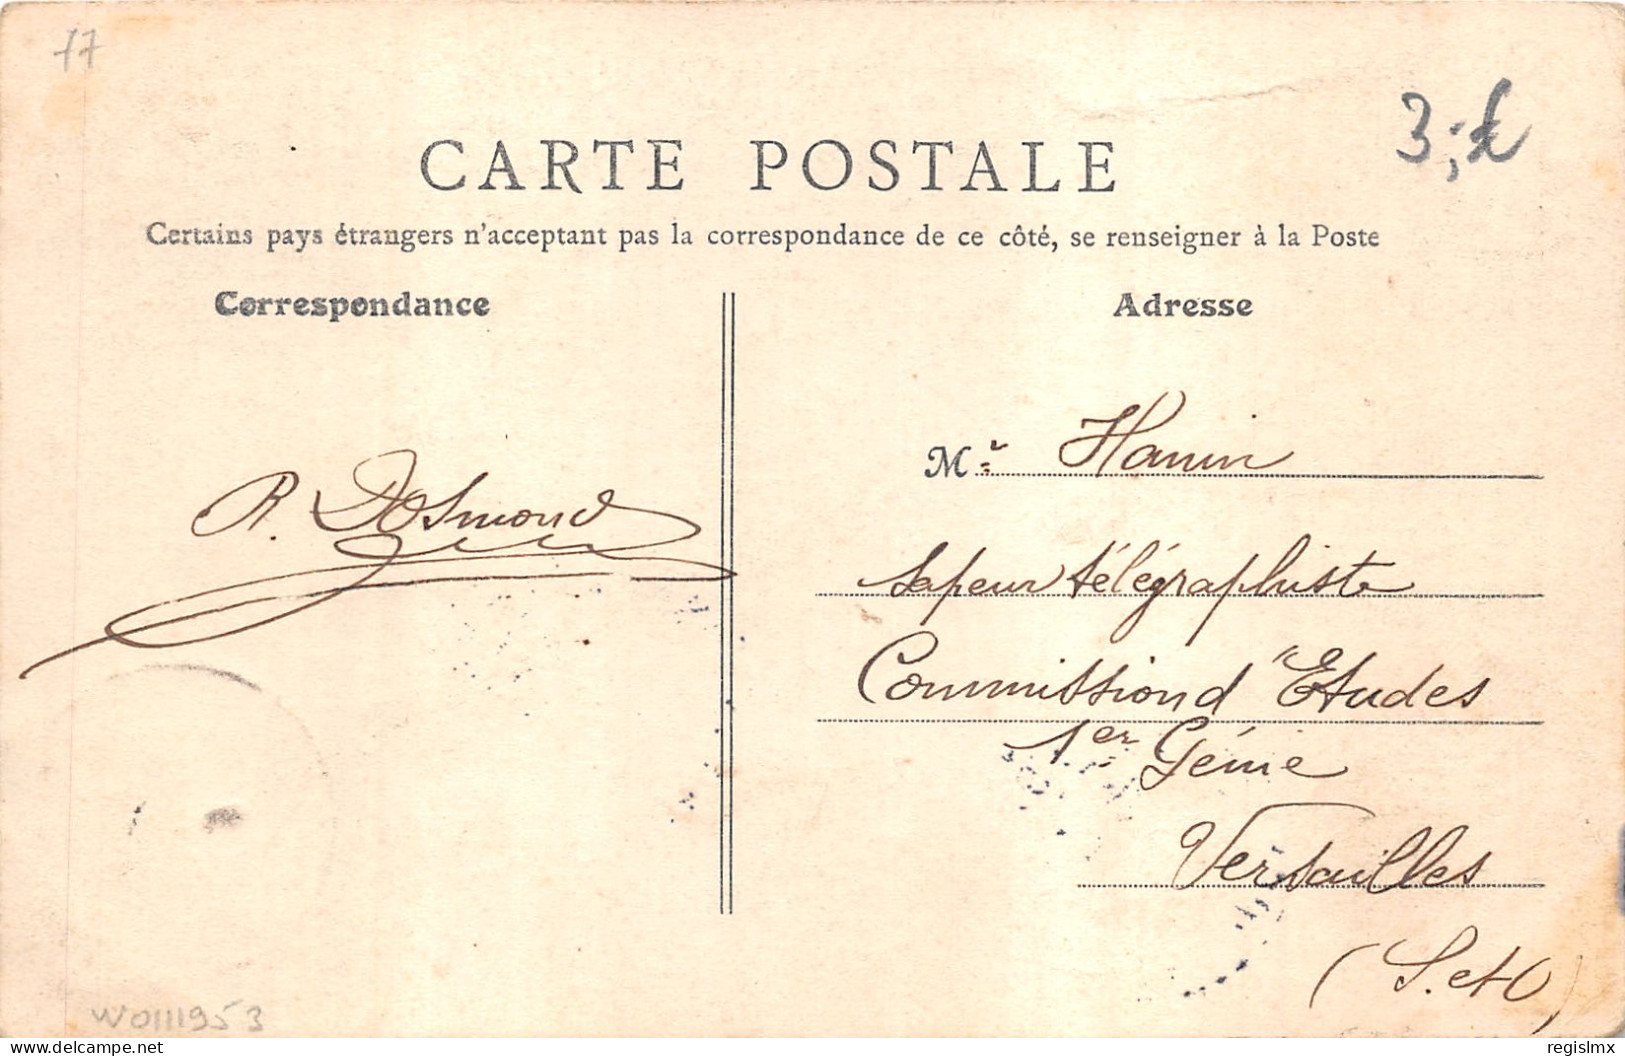 77
3,-€
CARTE POSTALE
Certains pays étrangers n'acceptent pas la correspondance de ce côté, se renseigner à la Poste
Correspondance
Adresse
Mr Hanin
R. Dosmond
Sapeur télégraphiste
Commission d'Etudes
1er Génie
Versailles
(S. et O)
W0111953
www.delcampe.net
regislmx